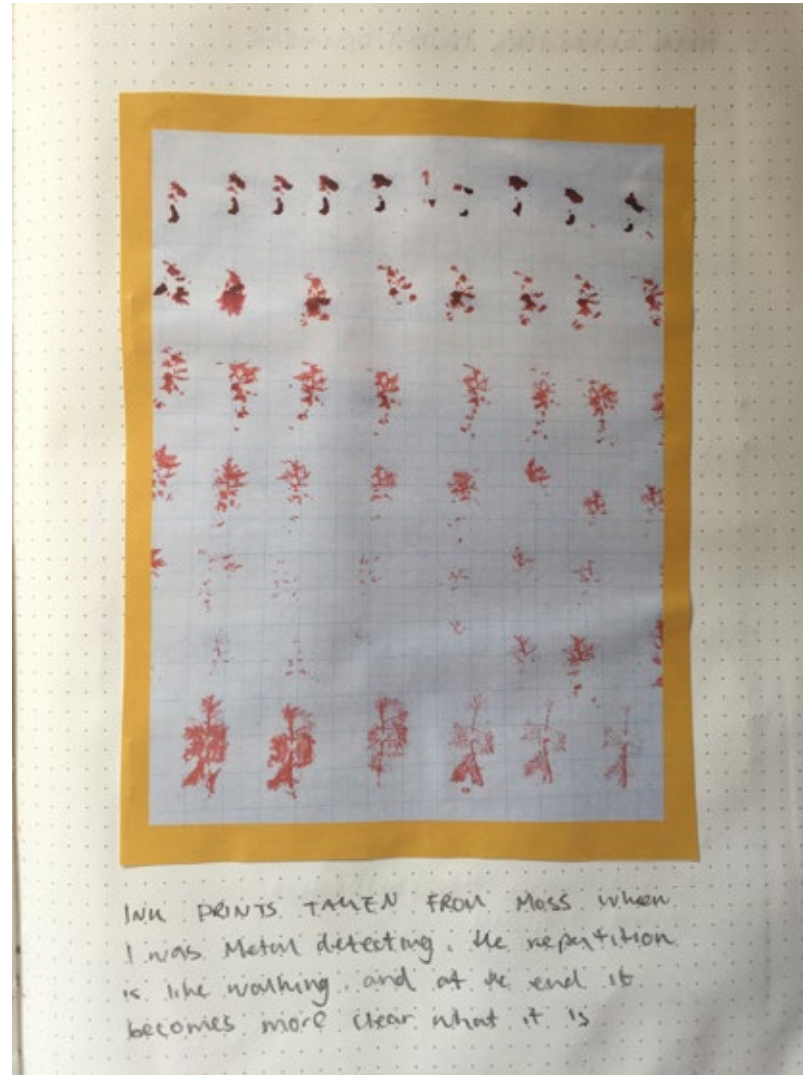 INK PRINTS TAKEN FROM MOSS when
I was Metal detecting. the repetition
is like walking and at the end it
becomes more clear what it is